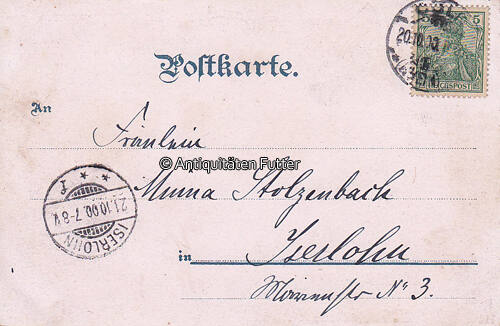 5
REICHSPOST
20.10.00
Postkarte.
An
Fräulein
© Antiquitäten Futter
Stolzenbach
21.10.00.7-8V.
ISERLOHN
in Iserlohn
No 3.